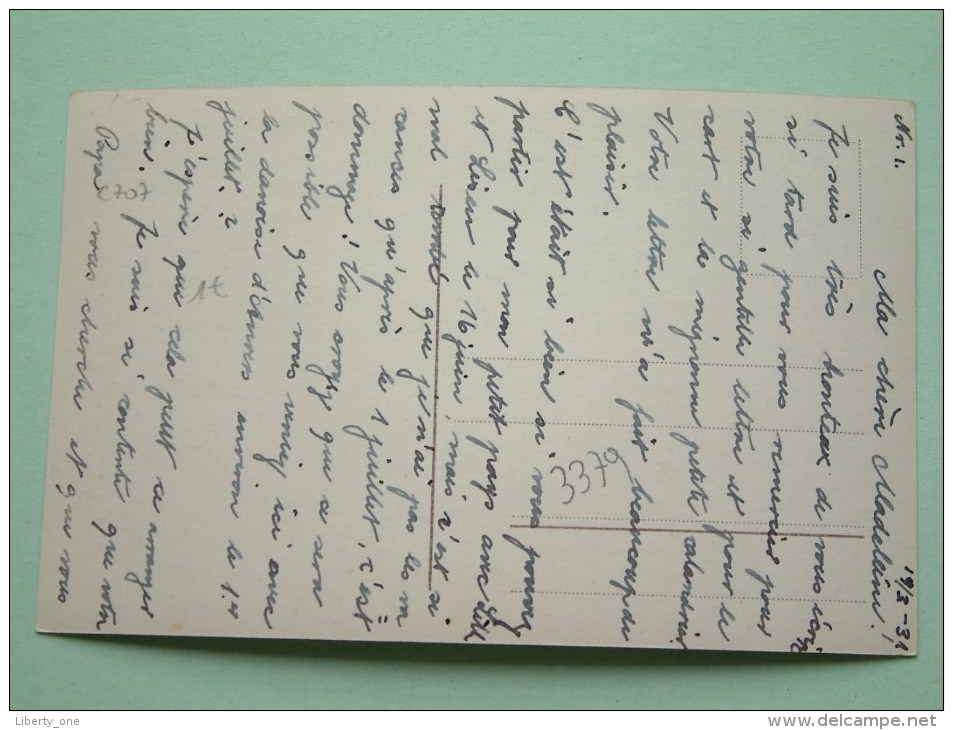 Nr. 1.
19/3 - 31
Ma chère Madeleine!
Je suis très honteux de vous écrire
si tard pour vous remercier pour
votre si gentille lettre et pour la
cart et la mignonne petite calendrier.
Votre lettre m'a fait beaucoup de
plaisir.
C'est était si bien si vous pouvez
partir pour mon petit pays avec
et le 16 juin, mais c'est si
mal tombé que je n'ai pas les
qu'après le 1 juillet, c'est
dommage! Vous croyez que ce sera
possible que vous veniez ici avec
la danoise d'Anvers environ le 1.
juillet?
J'espère que cela peut ce arranger
bien. Je suis si contente que votre
Papa vous cherche et que vous
3379
C707
17
Liberty_one
http://www.delcampe.net